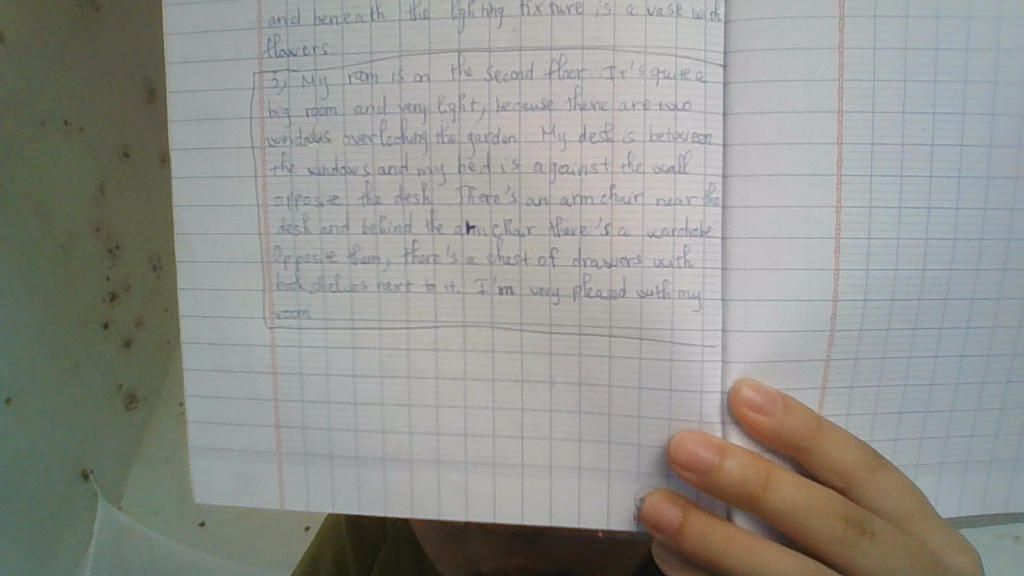 and beneath the lighting fixture is a vase with
flowers
3) My room is on the second floor. It's quite a
big room and very light, because there are two
windows overlooking the garden. My desk is between
the windows and my bed is against the wall
opposite the desk. There's an armchair near the
desk and behind the armchair there's a wardrobe
Opposite them, there's a chest of drawers with
book shelves next to it. I'm very pleased with my
room